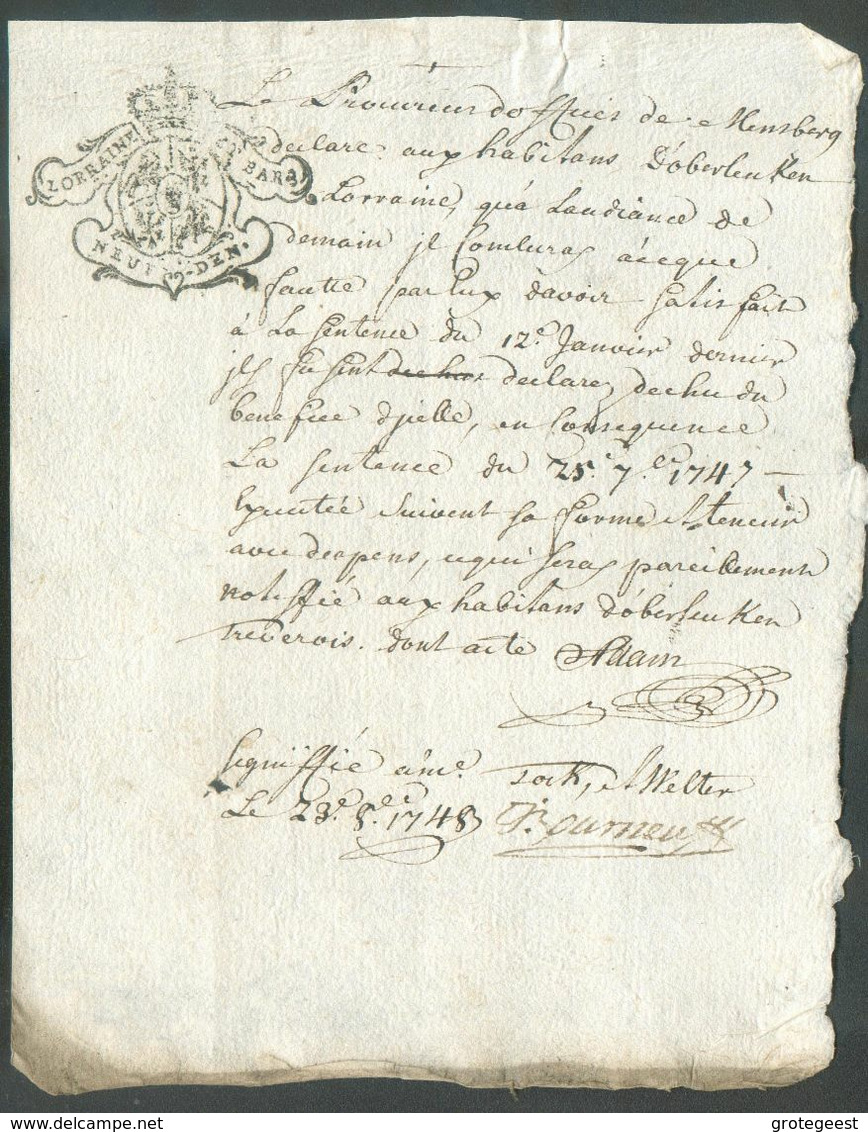 LORRAINE BAR
NEUF-DEN.
Le Procureur doffices de Mensberg
declare aux habitans D'oberleuken
Lorraine, qu'a Laudiance de
demain jl Concluras àceque
fautte par Eux davoir satisfait
à La Sentence du 12.e Janvier dernier
jls fusent declarez dechu du
benefice djcelle, en Consequence
La Sentence du 25.e 7.bre 1747 —
Executée suivent sa forme et teneur
avec despens, ce qui seras pareillement
notiffié aux habitans d'óberleuken
Treverois. dont acte Adam
signiffié à me. Tock, et Welter
Le 23.e 8.bre 1748
delcampe.net
grotegeest